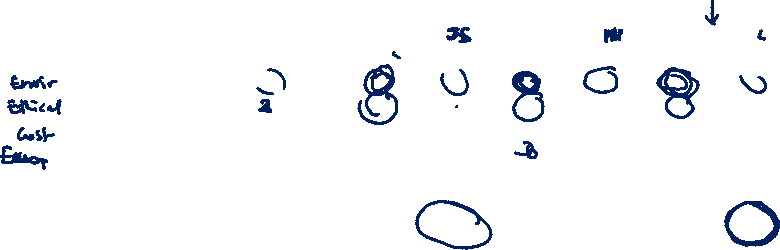 JS HH L
Envir
Ethical
2
Cost
Effort
3